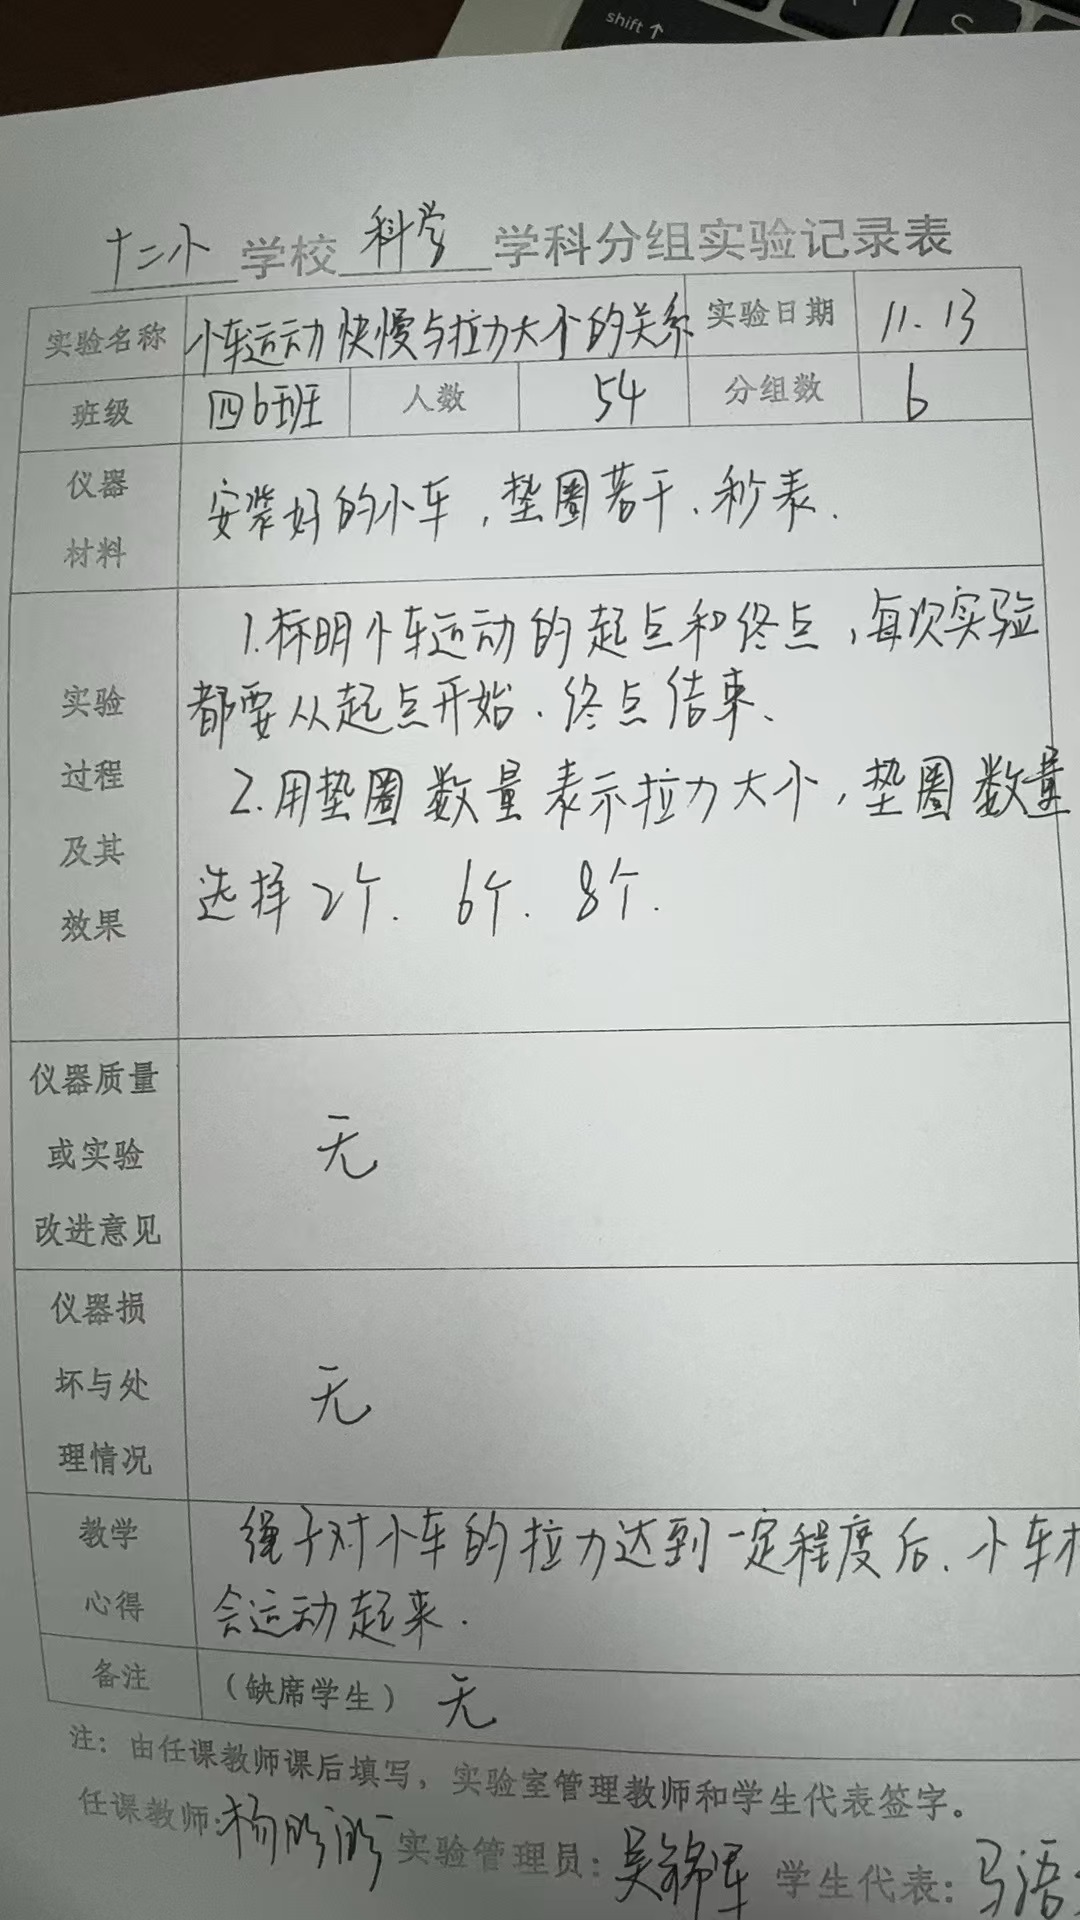 shift ↑
S
十二小 学校 科学 学科分组实验记录表
实验名称 小车运动快慢与拉力大小的关系 实验日期 11.13
班级 四6班 人数 54 分组数 6
仪器
材料
安装好的小车，垫圈若干、秒表.
实验
过程
及其
效果
1.标明小车运动的起点和终点，每次实验
都要从起点开始、终点结束、
2.用垫圈数量表示拉力大小，垫圈数量
选择2个、6个、8个.
仪器质量
或实验
改进意见
无
仪器损
坏与处
理情况
无
教学
心得
绳子对小车的拉力达到一定程度后、小车才
会运动起来.
备注 （缺席学生） 无
注：由任课教师课后填写，实验室管理教师和学生代表签字。
任课教师: 杨 实验管理员: 吴锦军 学生代表: 马语